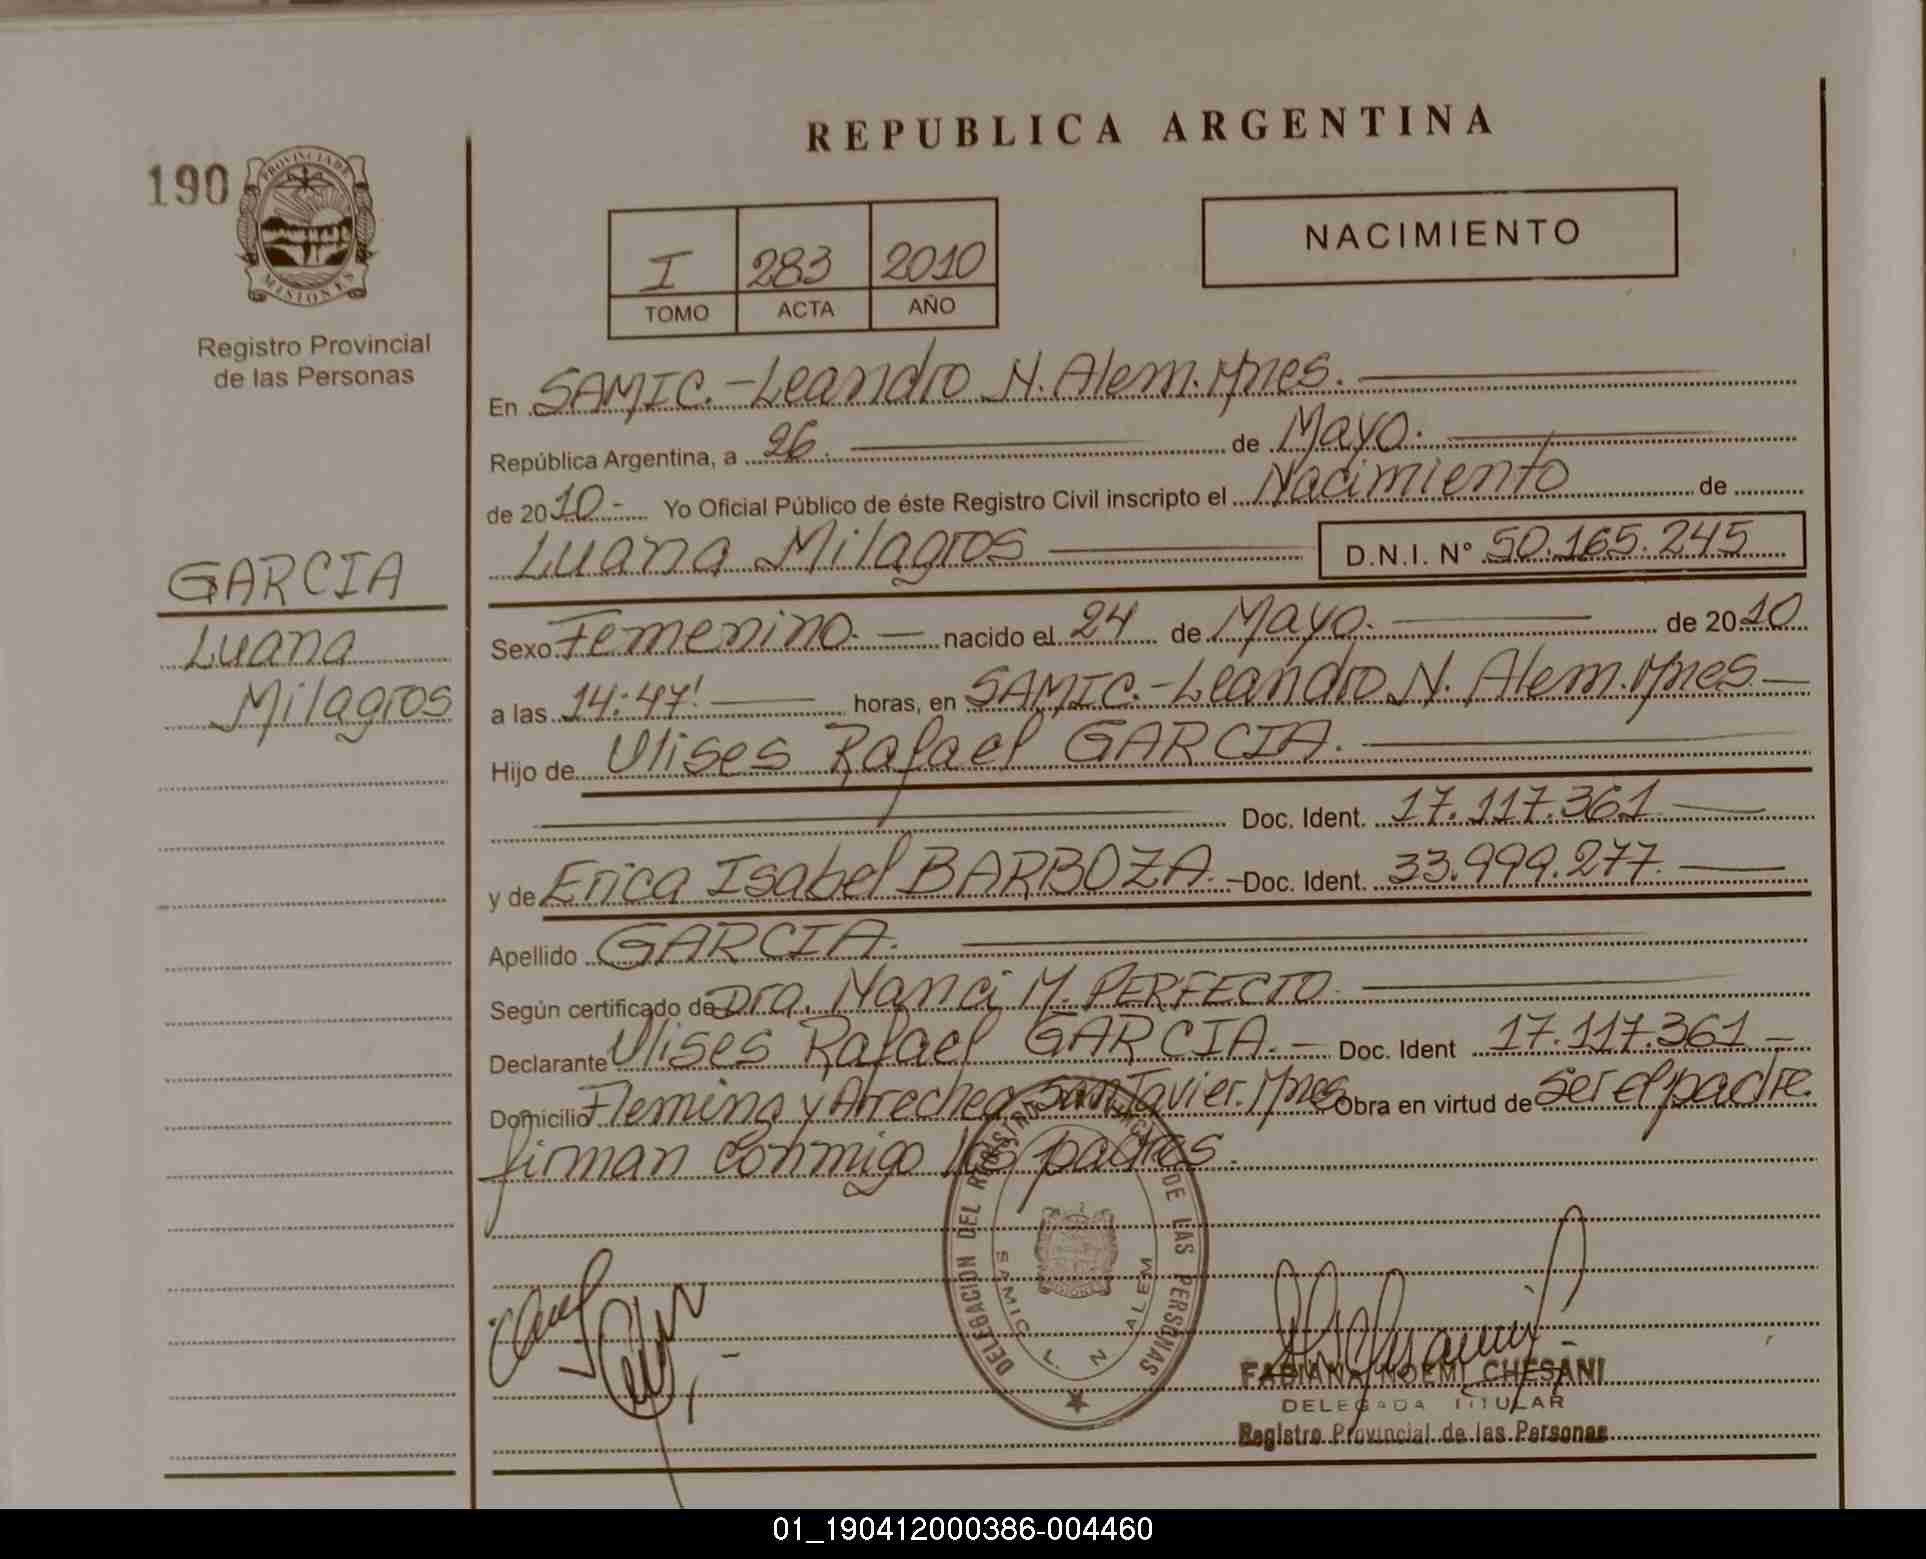 REPUBLICA ARGENTINA
190
PROVINCIA DE
MISIONES
NACIMIENTO
I 283 2010
TOMO ACTA AÑO
Registro Provincial
de las Personas
En SAMIC.-Leandro N. Alem. Mnes.
República Argentina, a 26. de Mayo.
de 2010- Yo Oficial Público de éste Registro Civil inscripto el Nacimiento de
Luana Milagros D.N.I. N° 50.165.245
GARCIA
Luana
Milagros
Sexo Femenino. nacido el 24 de Mayo. de 2010
a las 14:47' horas, en SAMIC.-Leandro N. Alem. Mnes
Hijo de Ulises Rafael GARCIA.
Doc. Ident. 17.117.361
y de Erica Isabel BARBOZA.-Doc. Ident. 33.999.277.
Apellido GARCIA.
Según certificado de Dra. Nanci M. PERFECTO
Declarante Ulises Rafael GARCIA.- Doc. Ident 17.117.361
Domicilio Fleming y Arrechea, San Javier. Mnes Obra en virtud de ser el padre.
firman conmigo los padres.
DELEGACION DEL DE LAS PERSONAS
SAMIC L. N ALEM
FABIANA NOEMI CHESANI
DELEGADA TITULAR
Registro Provincial de las Personas
01_190412000386-004460